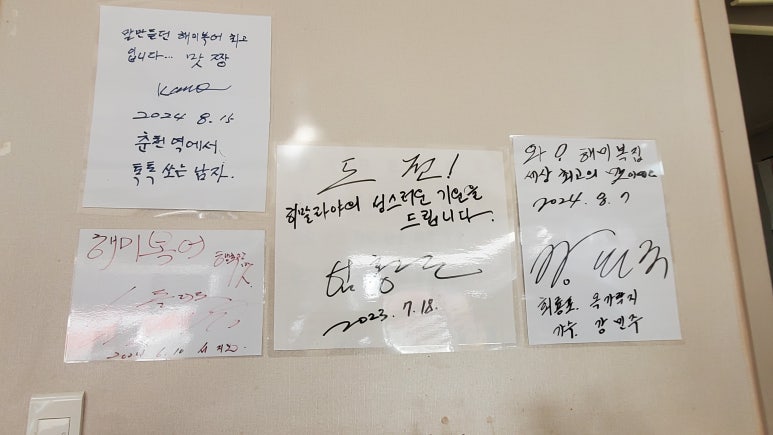 말만듣던 해미복어 최고
입니다... 맛 짱
2024 8.15
춘천역에서
톡톡 쏘는 남자.
해미복어
2024 6.10
도전!
히말라야의 성스러운 기운을
드립니다.
2023. 7.18.
와! 해미복집
세상 최고의
2024. 8. 7
강민주
회룡포. 톡가박지
가수. 강민주